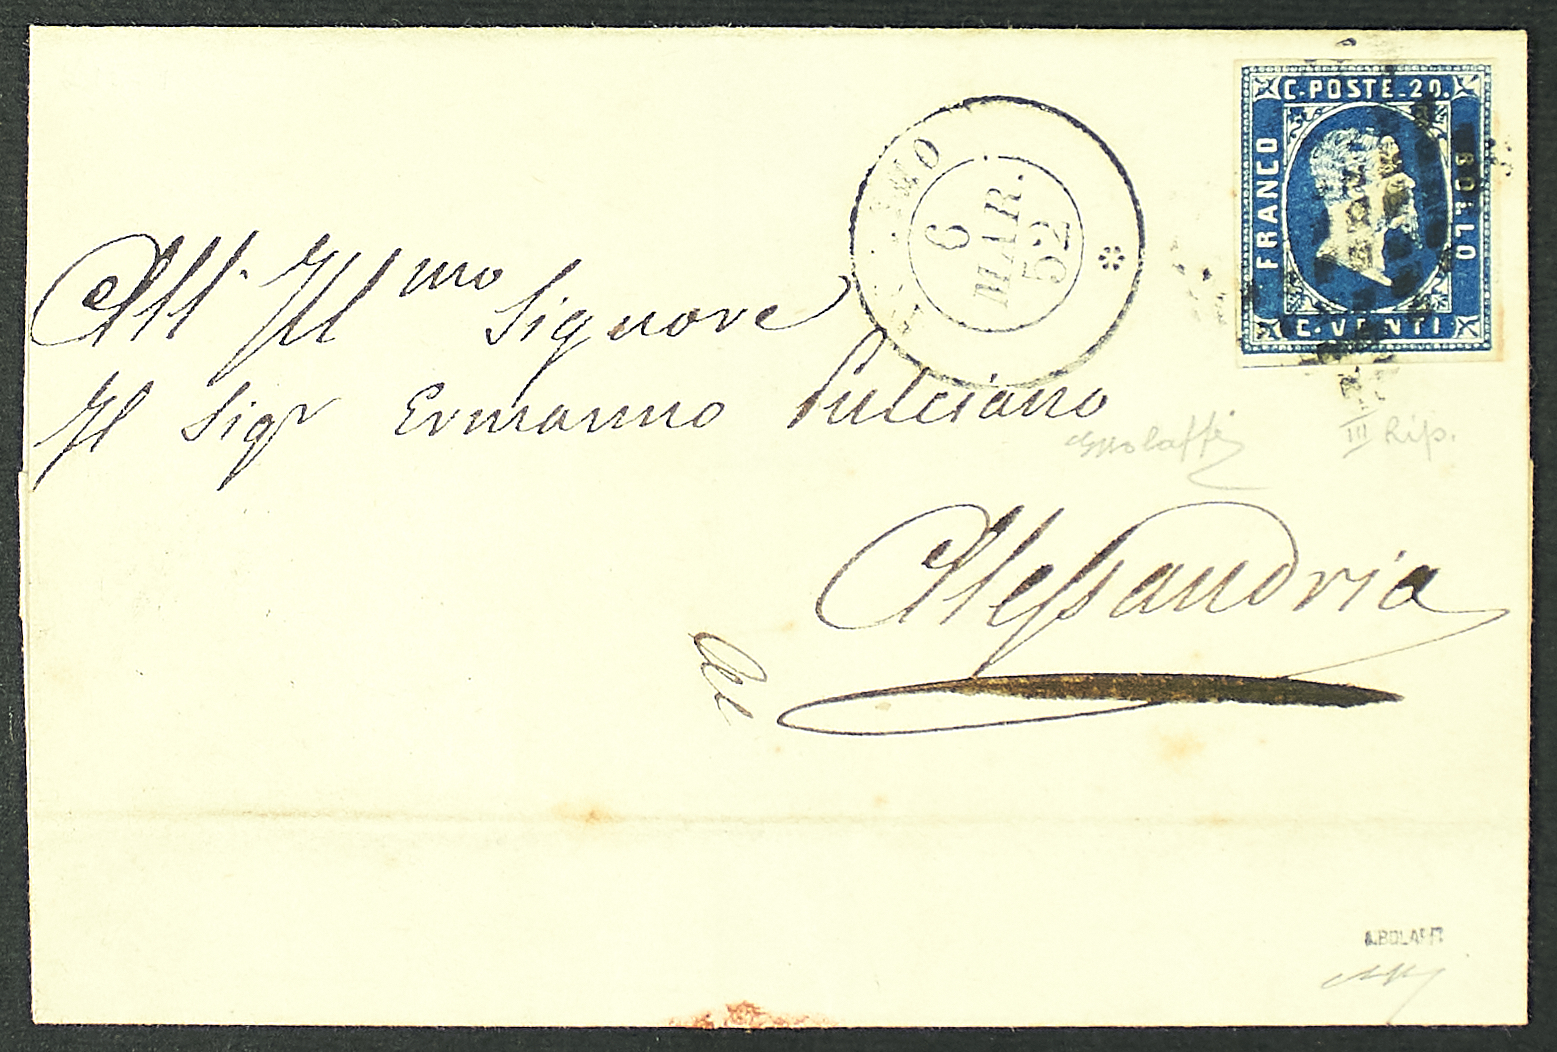 C. POSTE. 20.
FRANCO
BOLLO
C. VENTI
6
MAR.
52
All' Ill.mo Signore
Il Sigr Ermanno Pulciano
Alessandria
III Rip.
A. BOLAFFI